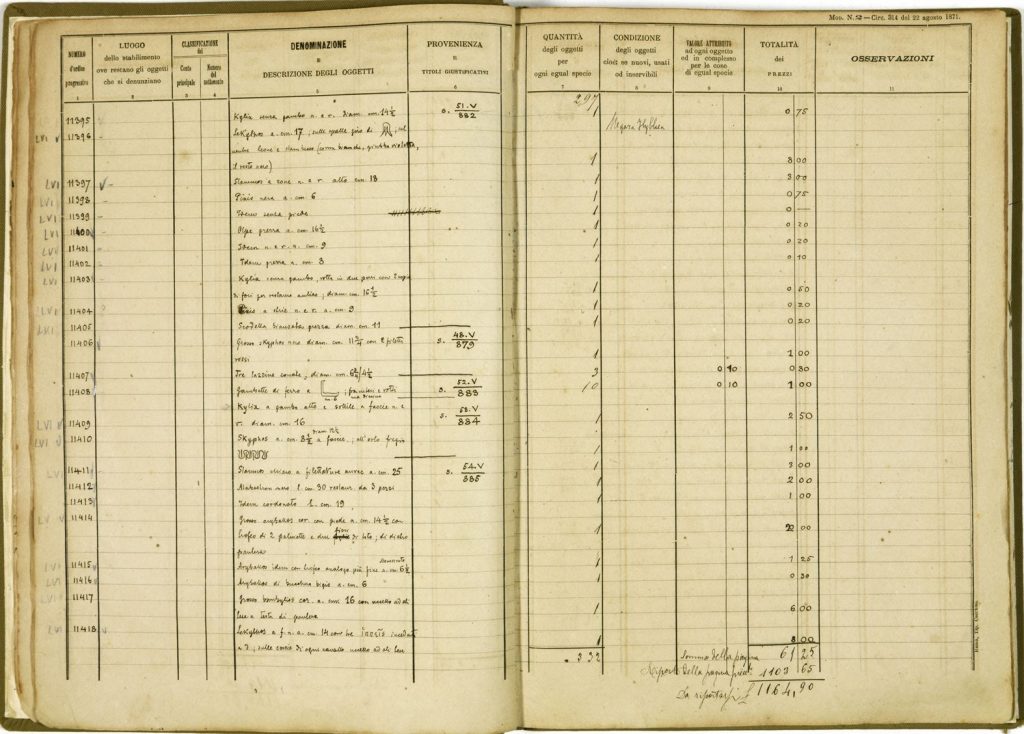 Mod. N. 52 — Circ. 314 del 22 agosto 1871.
NUMERO d'ordine progressivo
LUOGO dello stabilimento ove restano gli oggetti che si denunziano
CLASSIFICAZIONE del
Conto principale
Numero del sottoconto
DENOMINAZIONE E DESCRIZIONE DEGLI OGGETTI
PROVENIENZA E TITOLI GIUSTIFICATIVI
QUANTITÀ degli oggetti per ogni egual specie
CONDIZIONE degli oggetti cioè se nuovi, usati od inservibili
VALORE ATTRIBUITO ad ogni oggetto od in complesso per le cose di egual specie
TOTALITÀ dei PREZZI
OSSERVAZIONI
1 2 3 4 5 6 7 8 9 10 11
297
11395 Kylix senza gambo n. e r. diam. cm. 14½ s. 51.V/882 1 0 75
LVI v 11396 Lekythos a. cm. 17; sulle spalle giro di ; sul Megara Hyblaea
ventre leone e (corna bianche, violetta,
il resto nero) 1 3 00
LVI 11397 v Stamnos a zone n. e r. alto cm. 18 1 3 00
LVI 11398 Pixis nera a. cm 6 1 0 75
LVI 11399 Idem senza piede 1 0 —
LVI 11400 Olpe grezza a. cm 16½ 1 0 20
LVI 11401 Idem n. e r. a. cm. 9 1 0 20
LVI 11402 Idem grezza a. cm 8 1 0 10
LVI 11403 Kylix senza gambo, rotta in due pezzi con
di fori per restauro antico; diam. cm. 16½ 1 0 50
LVI 11404 Pixis a n. e r. a. cm. 9 1 0 20
LVI 11405 Scodella biansata grezza diam. cm. 11 1 0 20
11406 Grosso skyphos nero diam. cm 11¾ con 2 filetti s. 48.V/879
rossi 1 1 00
11407 Tre tazzine; diam. cm. 6½/4½ 3 0 10 0 30
11408 di ferro a ; e rotti s. 52.V/883 10 0 10 1 00
Kylix a gambo alto e sottile a fascie n. e s. 53.V/884
LVI v 11409 r. diam. cm. 16 1 2 50
LVI v 11410 Skyphos a. cm. 8½ a fascie; all'orlo fregio
1 1 00
LV 11411 Stamnos a filettature a. cm. 25 s. 54.V/885 1 3 00
11412 Alabastron nero l. cm. 30 restaur. da 3 pezzi 1 2 00
11413 Idem cordonato l. cm. 19 1 1 00
LV v 11414 Grosso aryballos cor. con piede a. cm. 14½ con
trofeo di 2 palmette e due fiori di loto; di dietro
pantera 1 22 00
LVI 11415 Aryballos idem con trofeo analogo più fine a. cm. 6½ 1 1 25
LVI 11416 Aryballos di bucchero bigio a. cm. 6 1 0 30
LVI 11417 Grosso bombylios cor. a. cm. 16 con uccello ad ali
tese a testa di pantera 1 6 00
LVI 11418 v Lekythos a f. n. a. cm. 14 con tre
a d.; sulle coscie di ogni cavallo uccello ad ali tese 1 8 00
332 Somma della pagina 61 25
Riporto della pagina 1103 65
Da riportarsi £ 1164,90